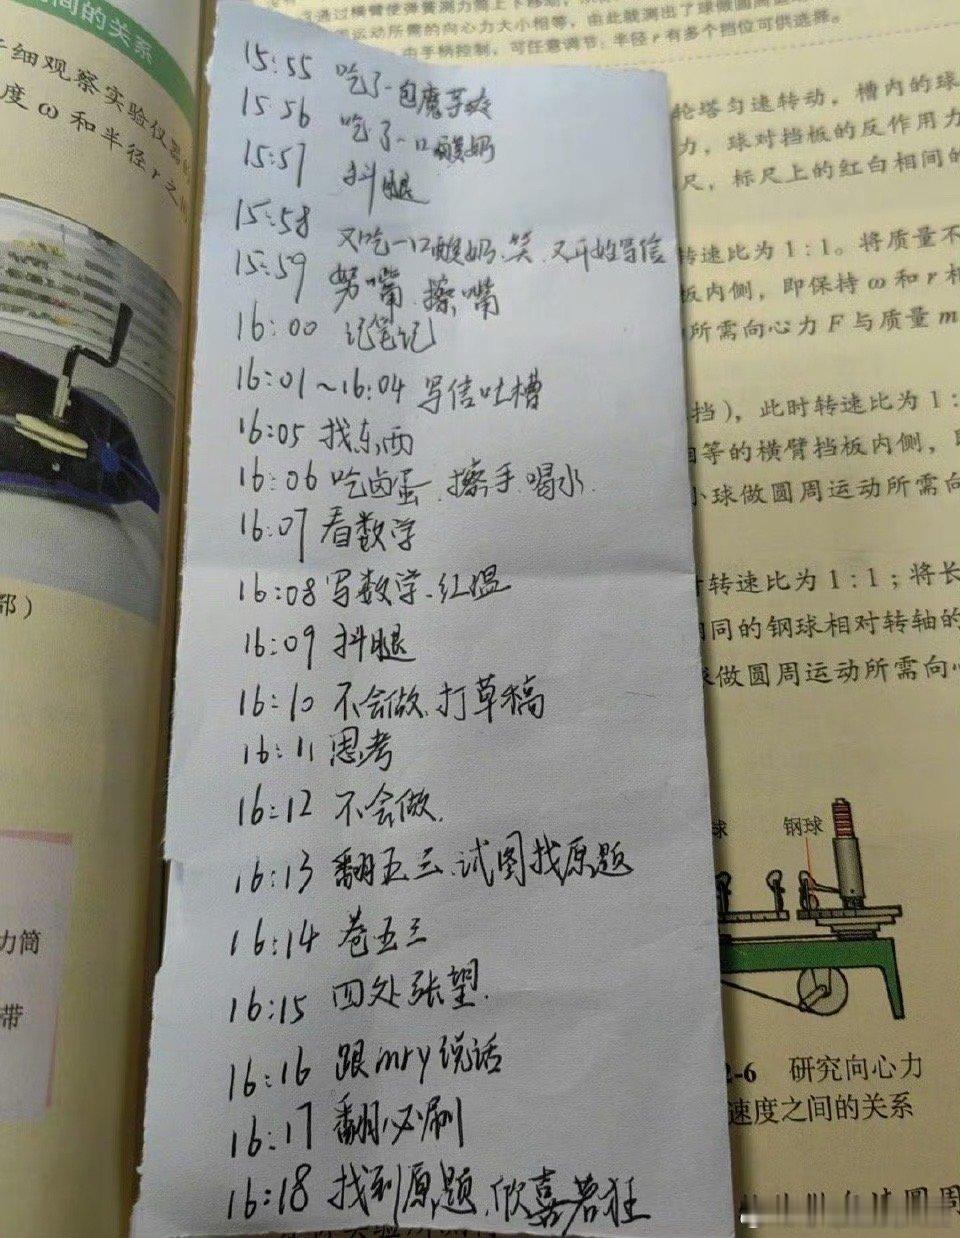 间的关系
仔细观察实验仪器
度 ω 和半径 r 之
部）
力筒
带
15:55 吃了一包魔芋爽
15:56 吃了一口酸奶
15:57 抖腿
15:58 又吃一口酸奶、笑、又开始写信
15:59 努嘴、擦嘴
16:00 记笔记
16:01~16:04 写信吐槽
16:05 找东西
16:06 吃卤蛋、擦手、喝水.
16:07 看数学
16:08 写数学、红温
16:09 抖腿
16:10 不会做、打草稿
16:11 思考
16:12 不会做.
16:13 翻五三、试图找原题
16:14 卷五三
16:15 四处张望.
16:16 跟mry说话
16:17 翻必刷
16:18 找到原题、欣喜若狂
通过横臂使弹簧测力筒上下移动，
运动所需的向心力大小相等，由此就测出了球做圆周
由手柄控制，可任意调节；半径 r 有多个挡位可供选择。
轮塔匀速转动，槽内的球
力，球对挡板的反作用力
尺，标尺上的红白相间的
转速比为 1∶1。将质量不
板内侧，即保持 ω 和 r 相
所需向心力 F 与质量 m
挡），此时转速比为 1∶
相等的横臂挡板内侧，
小球做圆周运动所需向
时转速比为 1∶1；将长
相同的钢球相对转轴的
球做圆周运动所需向心
球
钢球
2-6 研究向心力
速度之间的关系